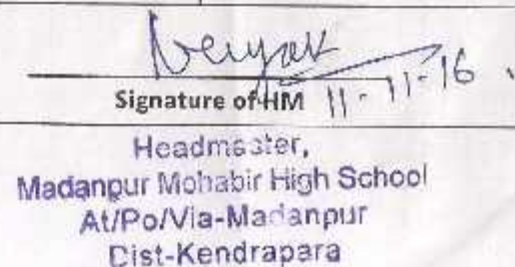 Signature of HM 11-11-16
Headmaster,
Madanpur Mohabir High School
At/Po/Via-Madanpur
Dist-Kendrapara